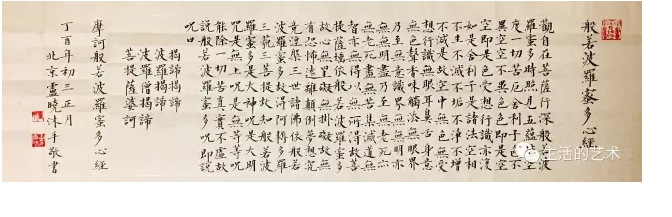 般若波羅蜜多心經
觀自在菩薩行深般若波
羅蜜多時照見五蘊皆空
度一切苦厄舍利子色不
異空空不異色色即是空
空即是色受想行識亦復
如是舍利子是諸法空相
不生不滅不垢不淨不增
不減是故空中無色無受
想行識無眼耳鼻舌身意
無色聲香味觸法無眼界
乃至無意識界無無明亦
無無明盡乃至無老死亦
無老死盡無苦集滅道無
智亦無得以無所得故菩
提薩埵依般若波羅蜜多
故心無罣礙無罣礙故無
有恐怖遠離顛倒夢想究
竟涅槃三世諸佛依般若
波羅蜜多故得阿耨多羅
三藐三菩提故知般若波
羅蜜多是大神呪是大明
呪是無上呪是無等等呪
能除一切苦真實不虛故
説般若波羅蜜多呪即説
呪曰
揭諦揭諦
波羅揭諦
波羅僧揭諦
菩提薩婆訶
摩訶般若波羅蜜多心經
丁酉年初三正月
北京盧曉沐手敬書
生活的艺术